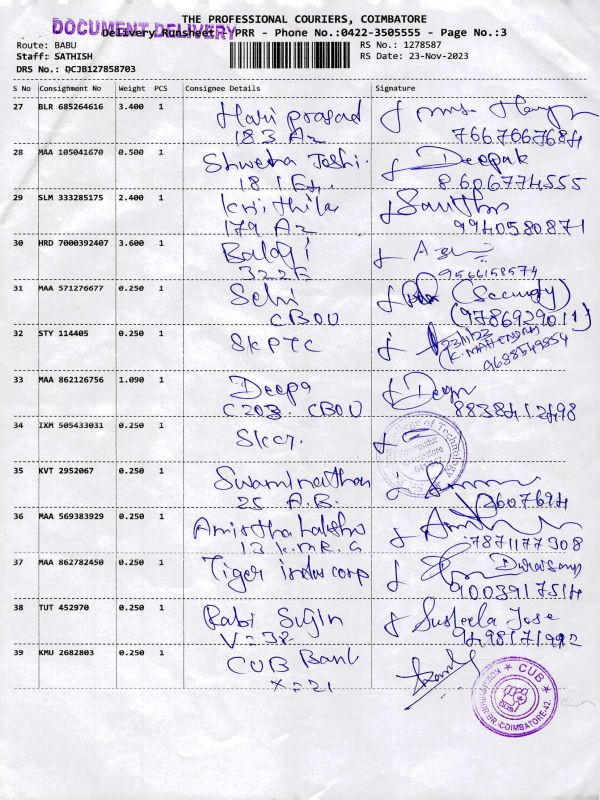 THE PROFESSIONAL COURIERS, COIMBATORE
DOCUMENT DELIVERY
Delivery Runsheet - PRR - Phone No.:0422-3505555 - Page No.:3
Route: BABU
RS No.: 1278587
Staff: SATHISH
RS Date: 23-Nov-2023
DRS No.: DCJB127858703
S No Consignment No Weight PCS Consignee Details Signature
27 BLR 685264616 3.400 1 Hari prasad
183 Az
28 MAA 105041670 0.500 1 Shweta Joshi. Deepak
18 8606774555
29 SLM 333285175 2.400 1 Krithika
179 Az 9940580871
30 HRD 7000392407 3.600 1 Balaji
9566158574
31 MAA 571276677 0.250 1 Selvi (Security)
CBOU (9786929011)
32 STY 114405 0.250 1 SKPTC
K. MAHENDRAN
9688549854
33 MAA 862126756 1.090 1 Deepa
C203. CBOU 8838412498
34 IXM 505433031 0.250 1
College of Technology
35 KVT 2952067 0.250 1 Swaminathan
25 A.B.
36 MAA 569383929 0.250 1
13 K.M.R.G 7871177308
37 MAA 862782450 0.250 1 Tiger corp Duraisamy
9003917514
38 TUT 452970 0.250 1 Sujin Susheela Jose
V=38 9498171992
39 KMU 2682803 0.250 1 CUB Bank
X=21
CUB
COIMBATORE-42